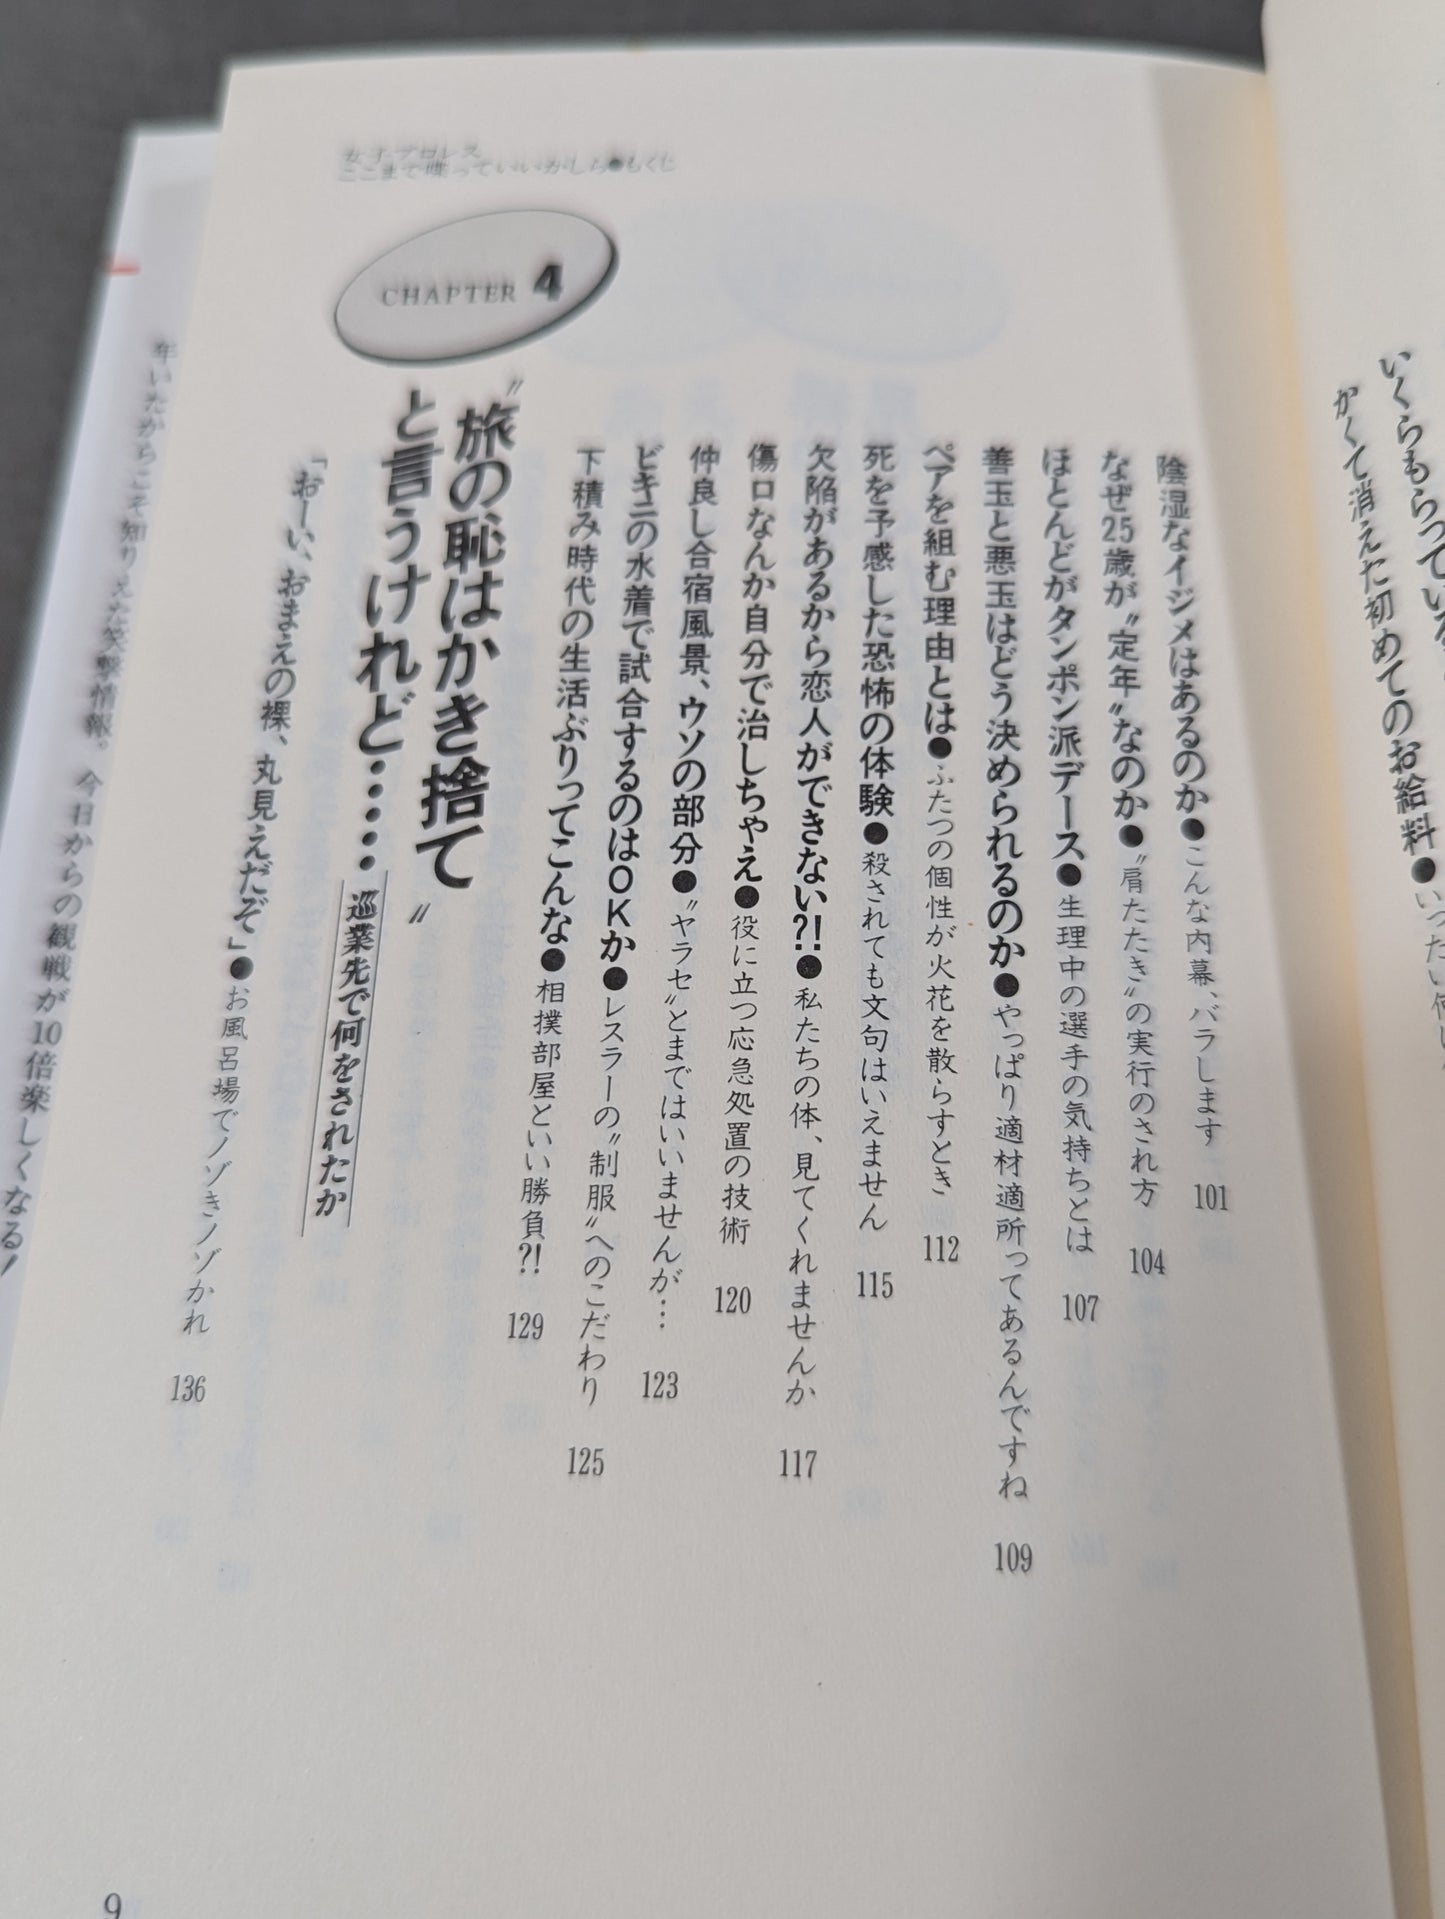 いくらもらってい
かくて消えた初めてのお給料●いったい何に
女子プロレス
ここまで喋っていいかしら●もくじ
陰湿なイジメはあるのか●こんな内幕、バラします 101
なぜ25歳が〝定年〟なのか●〝肩たたき〟の実行のされ方 104
ほとんどがタンポン派デース●生理中の選手の気持ちとは 107
善玉と悪玉はどう決められるのか●やっぱり適材適所ってあるんですね 109
ペアを組む理由とは●ふたつの個性が火花を散らすとき 112
死を予感した恐怖の体験●殺されても文句はいえません 115
欠陥があるから恋人ができない?!●私たちの体、見てくれませんか 117
傷口なんか自分で治しちゃえ●役に立つ応急処置の技術 120
仲良し合宿風景、ウソの部分●〝ヤラセ〟とまではいいませんが… 123
ビキニの水着で試合するのはOKか●レスラーの〝制服〟へのこだわり 125
下積み時代の生活ぶりってこんな●相撲部屋といい勝負?! 129
CHAPTER 4
〝旅の恥はかき捨て〟
と言うけれど……巡業先で何をされたか
「おーい、おまえの裸、丸見えだぞ」●お風呂場でノゾきノゾかれ 136
9
年いたからこそ知りえた笑撃情報。今日からの観戦が10倍楽しくなる!